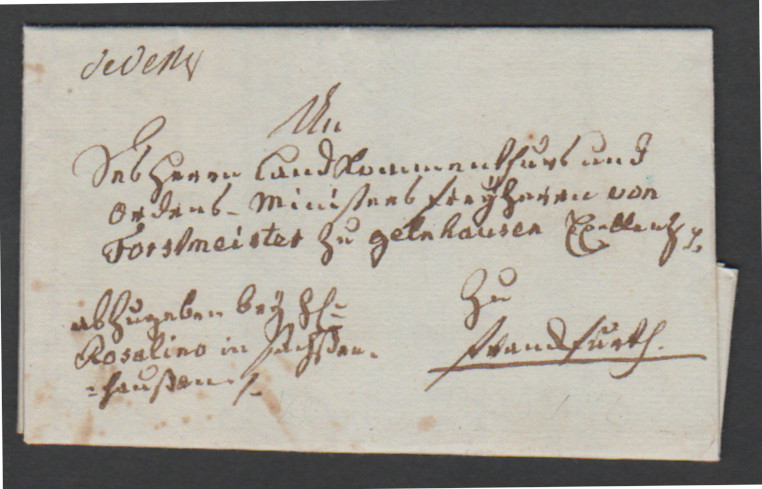 An
Des Herrn Land Kommenthurs und
Ordens-Ministers Freyherrn von
Forstmeister zu gelnhausen Excellenz
abzugeben bey H:
Rosalino in Sachsen-
=hausen
zu
Frankfurth.